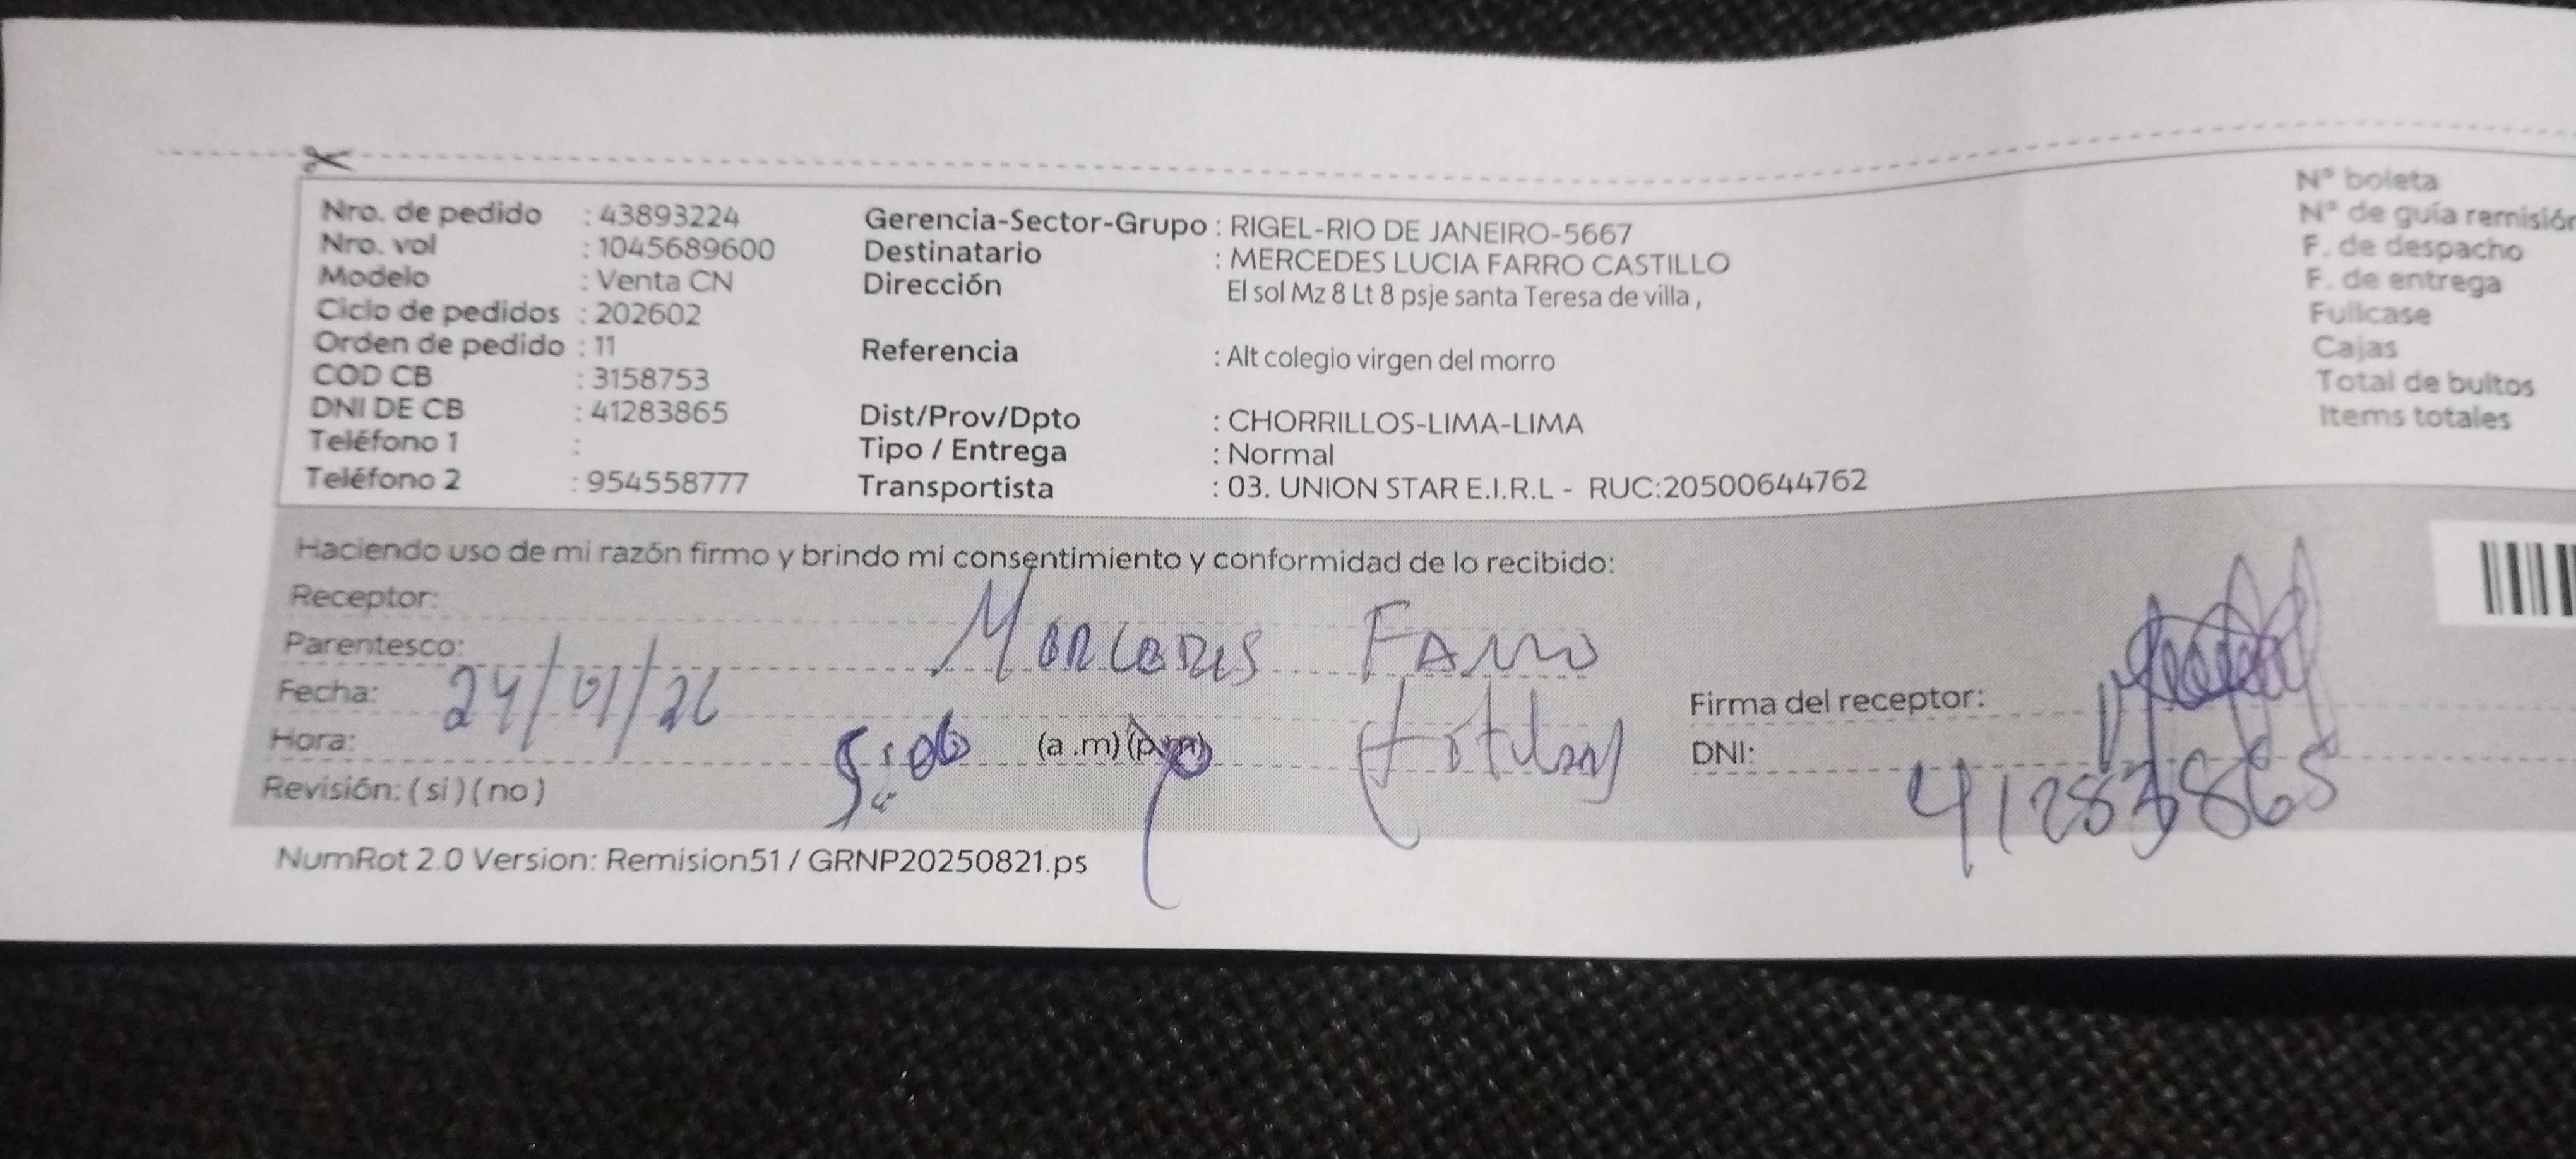 Nro. de pedido : 43893224
Nro. vol : 1045689600
Modelo : Venta CN
Ciclo de pedidos : 202602
Orden de pedido : 11
COD CB : 3158753
DNI DE CB : 41283865
Teléfono 1 :
Teléfono 2 : 954558777
Gerencia-Sector-Grupo : RIGEL-RIO DE JANEIRO-5667
Destinatario : MERCEDES LUCIA FARRO CASTILLO
Dirección El sol Mz 8 Lt 8 psje santa Teresa de villa ,
Referencia : Alt colegio virgen del morro
Dist/Prov/Dpto : CHORRILLOS-LIMA-LIMA
Tipo / Entrega : Normal
Transportista : 03. UNION STAR E.I.R.L - RUC:20500644762
N° boleta
N° de guía remisión
F. de despacho
F. de entrega
Fullcase
Cajas
Total de bultos
Items totales
Haciendo uso de mi razón firmo y brindo mi consentimiento y conformidad de lo recibido:
Receptor:
Parentesco: Mercedes Farro
Fecha: 24/01/26
Hora: (a .m) (p.m)
Revisión: ( si ) ( no )
Firma del receptor:
DNI: 41283865
NumRot 2.0 Version: Remision51 / GRNP20250821.ps